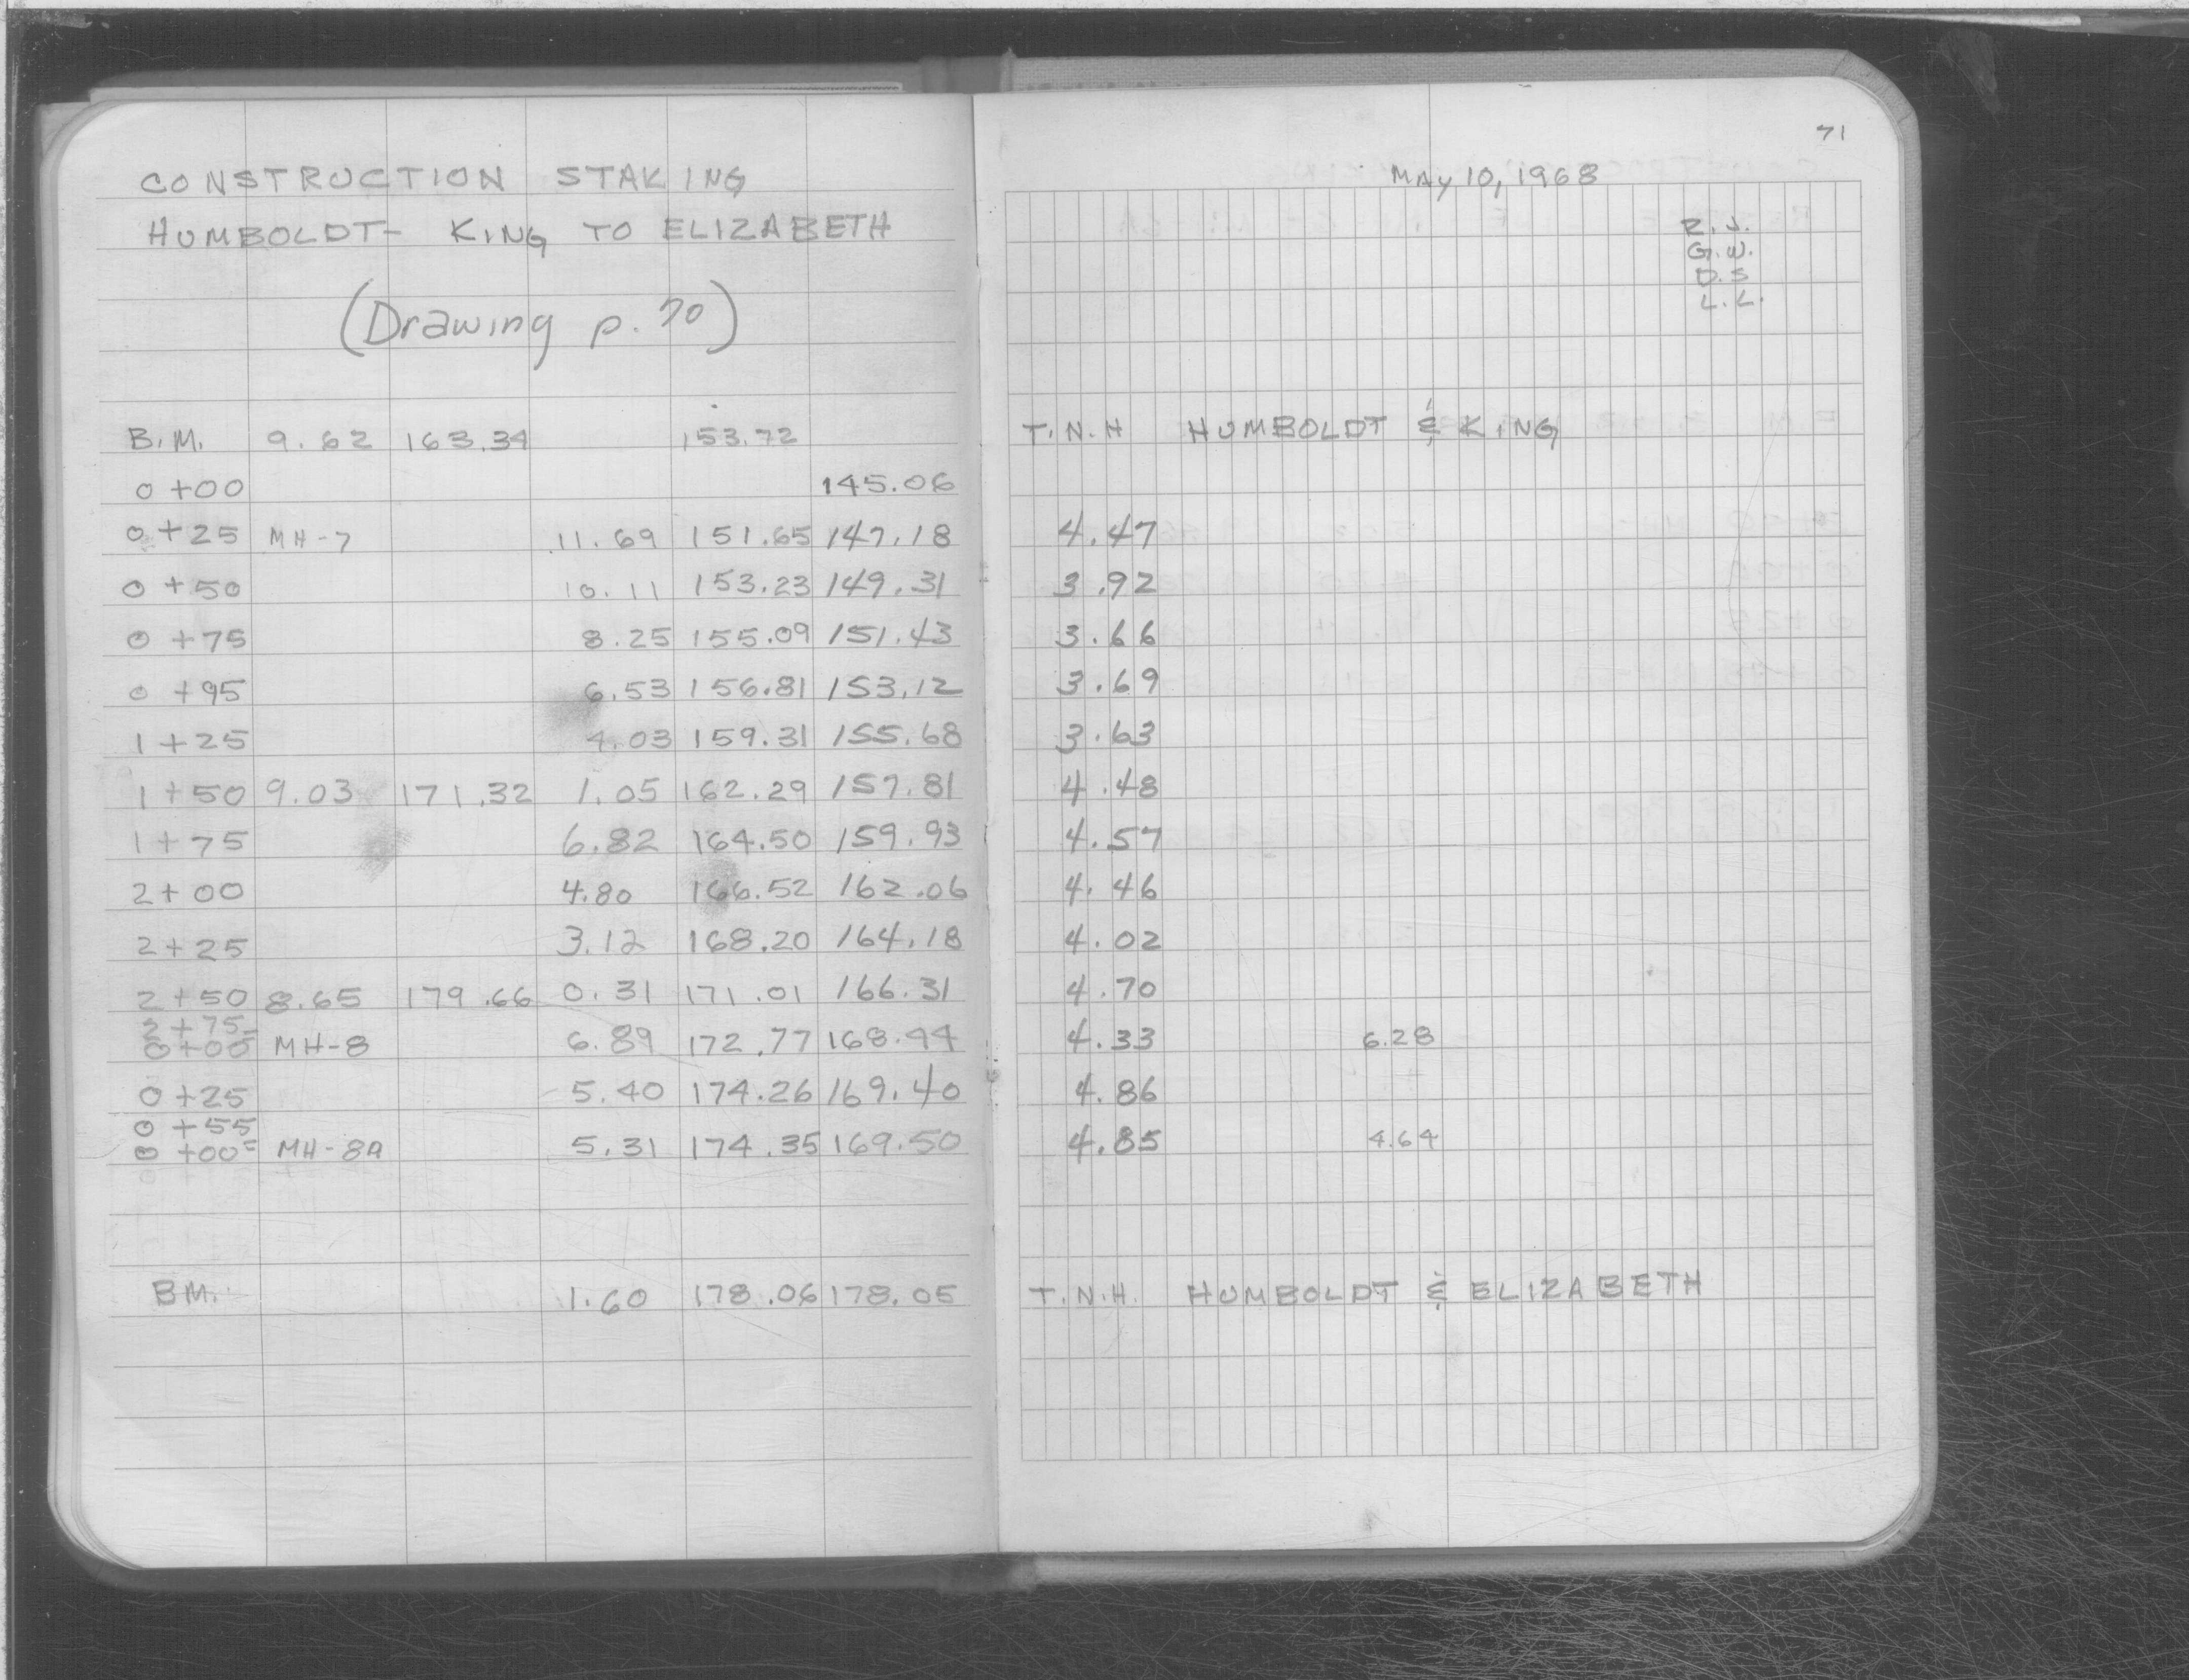 CONSTRUCTION STAKING
HUMBOLDT- KING TO ELIZABETH
(Drawing p. 70)
B.M. 9.62 163.34 153.72
0+00 145.06
0+25 MH-7 11.69 151.65 147.18
0+50 10.11 153.23 149.31
0+75 8.25 155.09 151.43
0+95 6.53 156.81 153.12
1+25 4.03 159.31 155.68
1+50 9.03 171.32 1.05 162.29 157.81
1+75 6.82 164.50 159.93
2+00 4.80 166.52 162.06
2+25 3.12 168.20 164.18
2+50 8.65 179.66 0.31 171.01 166.31
2+75=
0+00 MH-8 6.89 172.77 168.44
0+25 5.40 174.26 169.40
0+55
0+00= MH-8A 5.31 174.35 169.50
BM. 1.60 178.06 178.05
71
MAY 10, 1968
R.J.
G.W.
D.S
L.L.
T.N.H HUMBOLDT & KING
4.47
3.92
3.66
3.69
3.63
4.48
4.57
4.46
4.02
4.70
4.33 6.28
4.86
4.85 4.64
T.N.H. HUMBOLDT & ELIZABETH